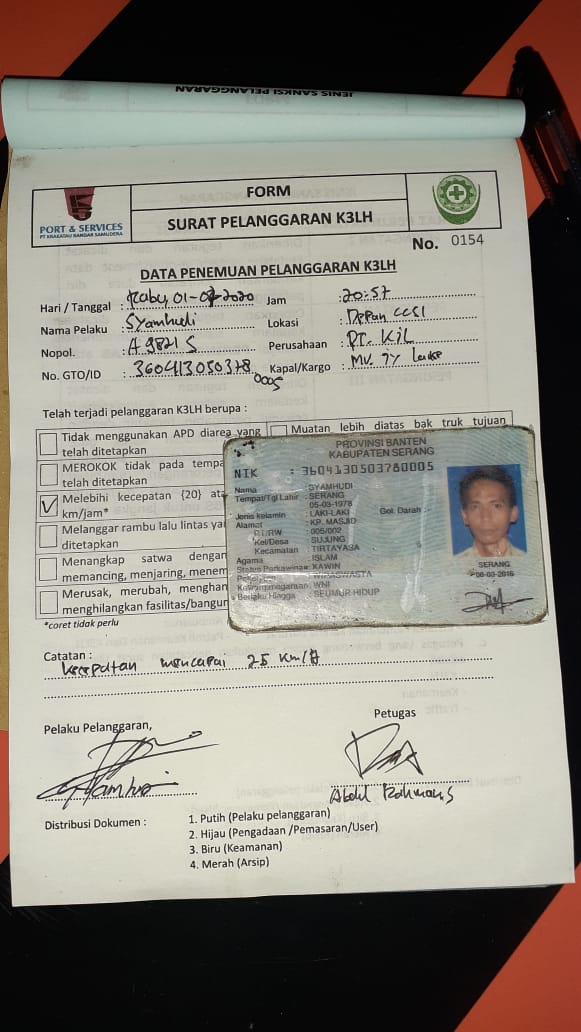 JENIS SANKSI PELANGGARAN
FORM
SURAT PELANGGARAN K3LH
PORT & SERVICES
PT KRAKATAU BANDAR SAMUDERA
No. 0154
DATA PENEMUAN PELANGGARAN K3LH
Hari / Tanggal : Rabu, 01-07-2020 Jam : 20:57
Nama Pelaku : Syamhudi Lokasi : Depan CCSI
Nopol. : A 9821 S Perusahaan : PT. KIL
No. GTO/ID : 360413050378 0005 Kapal/Kargo : MV.
Telah terjadi pelanggaran K3LH berupa :
Tidak menggunakan APD diarea yang
telah ditetapkan
Muatan lebih diatas bak truk tujuan
MEROKOK tidak pada tempa
telah ditetapkan
Melebihi kecepatan {20} ata
km/jam*
Melanggar rambu lalu lintas ya
ditetapkan
Menangkap satwa dengan
memancing, menjaring, menem
Merusak, merubah, menghan
menghilangkan fasilitas/bangun
*coret tidak perlu
PROVINSI BANTEN
KABUPATEN SERANG
NIK : 3604130503780005
Nama : SYAMHUDI
Tempat/Tgl Lahir : SERANG
05-03-1978
Jenis kelamin : LAKI-LAKI Gol. Darah :
Alamat : KP. MASJID
RT/RW : 005/002
Kel/Desa : SUJUNG
Kecamatan : TIRTAYASA
Agama : ISLAM
Status Perkawinan : KAWIN
Pekerjaan : WIRASWASTA
Kewarganegaraan : WNI
Berlaku Hingga : SEUMUR HIDUP
SERANG
06-03-2016
Catatan :
kecepatan mencapai 25 Km/
Pelaku Pelanggaran,
Petugas
Abdul Rahman S
Distribusi Dokumen :
1. Putih (Pelaku pelanggaran)
2. Hijau (Pengadaan /Pemasaran/User)
3. Biru (Keamanan)
4. Merah (Arsip)